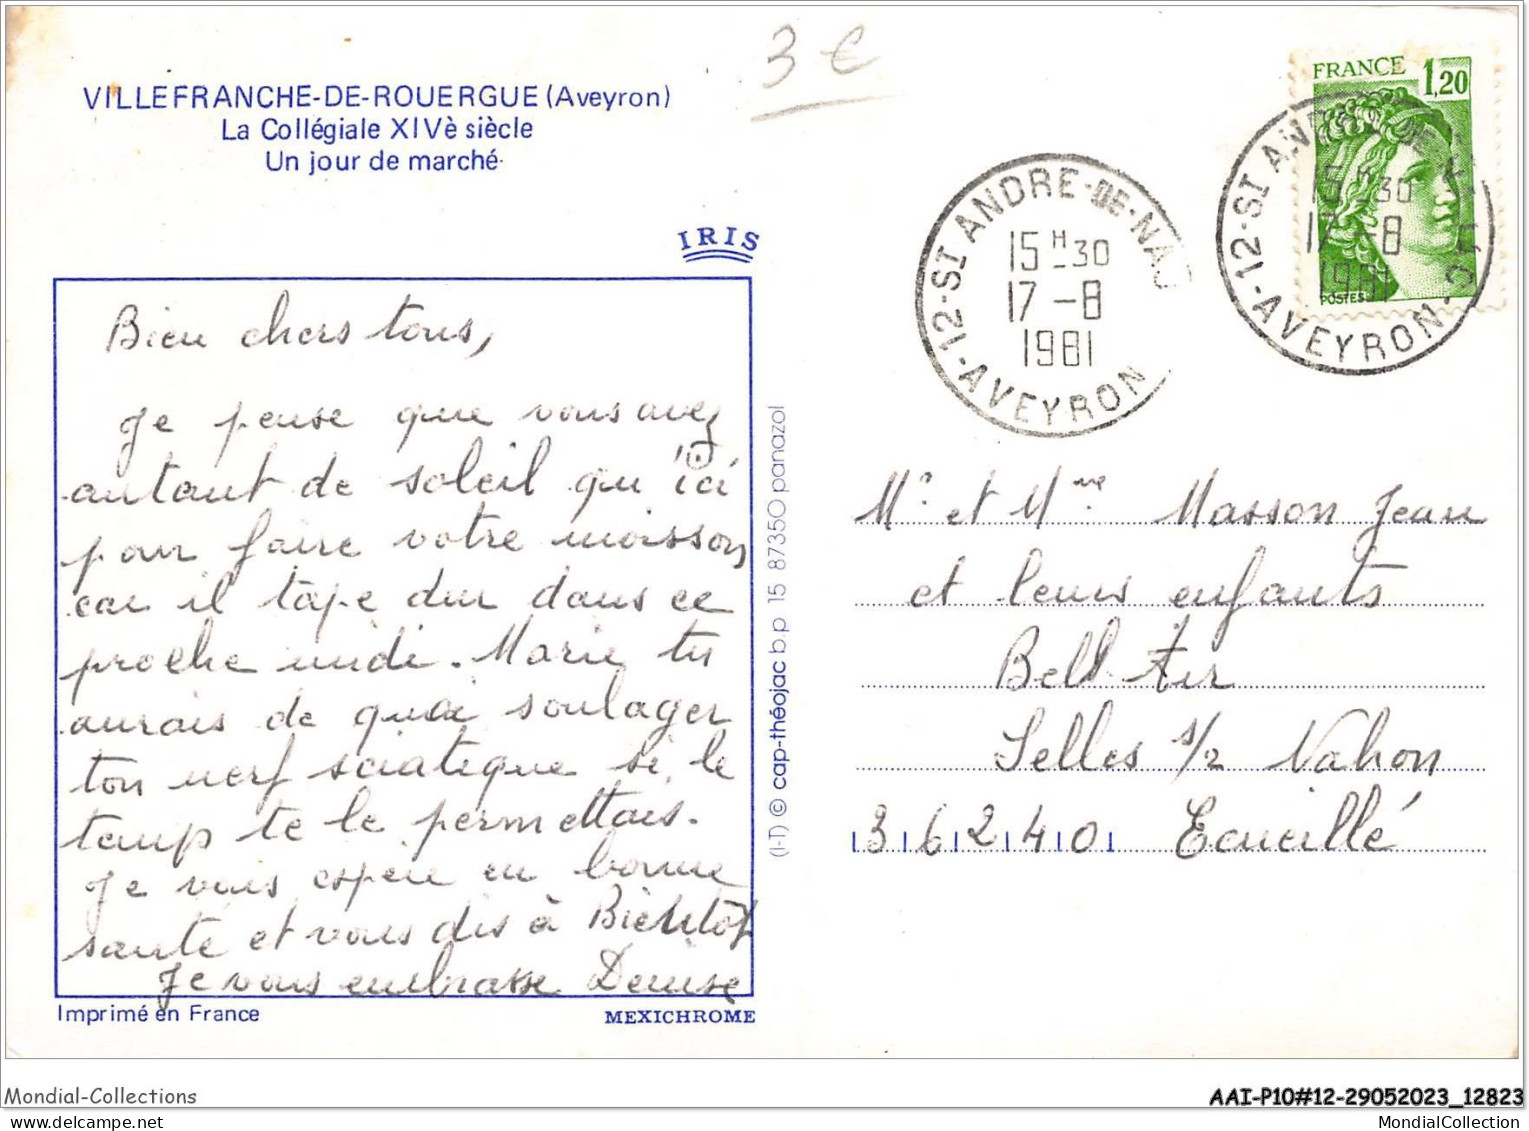 VILLEFRANCHE-DE-ROUERGUE (Aveyron)
La Collégiale XIVè siècle
Un jour de marché
3 €
IRIS
Bien chers tous,
Je pense que vous avez
autant de soleil qu'ici
pour faire votre moisson
car il tape dur dans ce
proche midi. Marie, tu
aurais de quoi soulager
ton nerf sciatique si le
temps te le permettais.
Je vous espère en bonne
santé et vous dis à Bientôt
Je vous embrasse Denise
Imprimé en France
MEXICHROME
(I-T) © cap-théojac b.p 15 87350 panazol
FRANCE 1,20
POSTES
12-ST ANDRE-DE-NAJ
15 H 30
17-8
1981
AVEYRON
12-ST ANDRE-DE-
15 H 30
17-8
1981
AVEYRON
Mr et Mme Masson Jean
et leurs enfants
Bell Air
Selles s/2 Nahon
36240 Ecueillé
Mondial-Collections
AAI-P10#12-29052023_12823
delcampe.net
MondialCollection